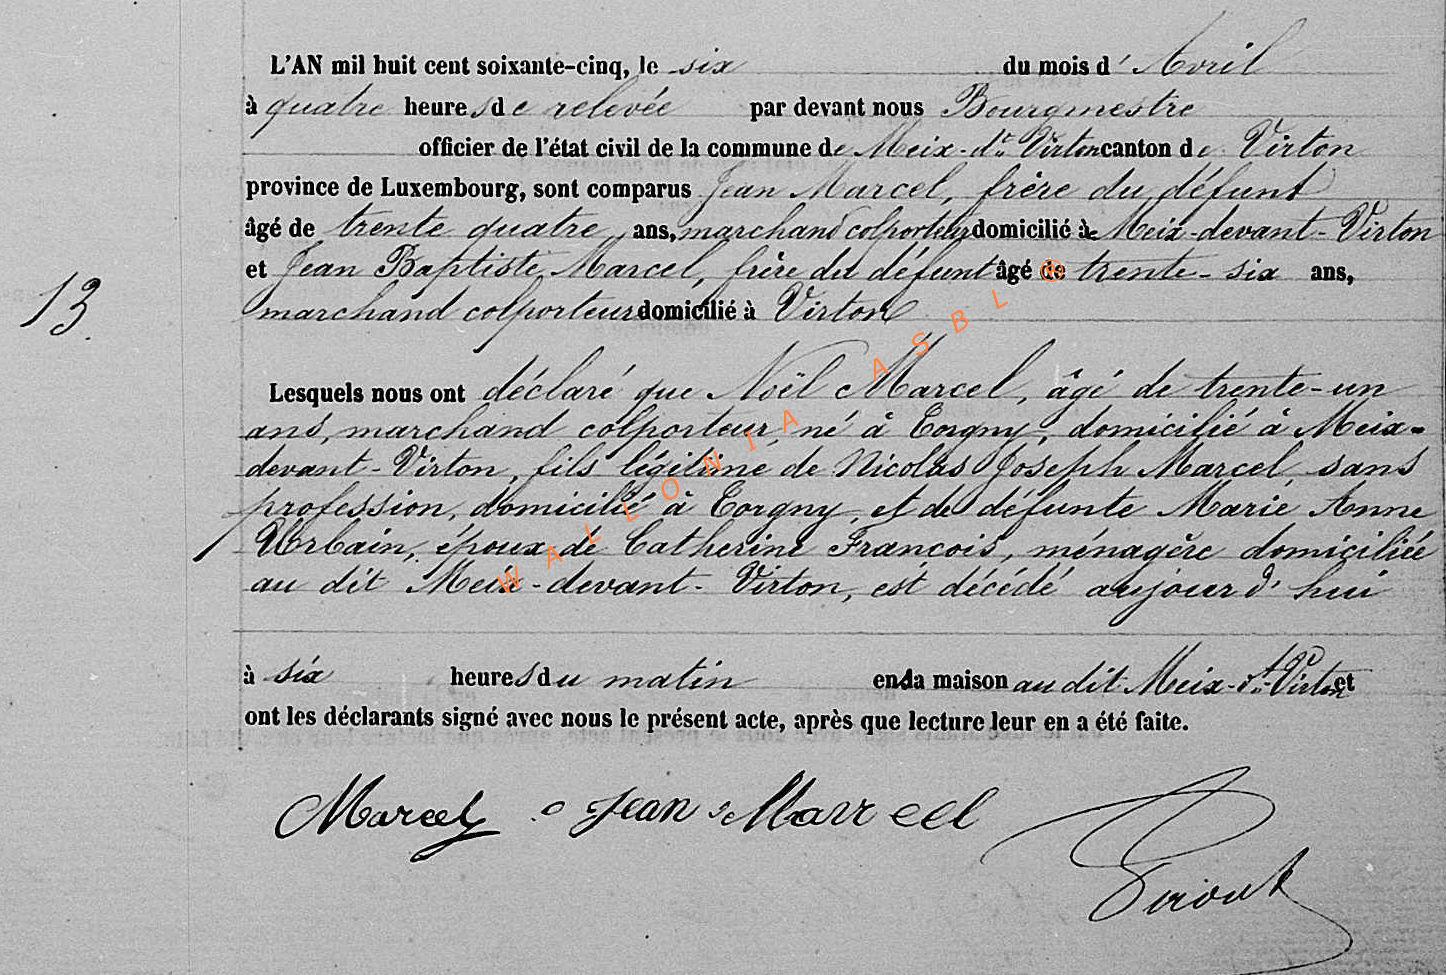 L'AN mil huit cent soixante-cinq, le six du mois d' Avril
à quatre heures de relevée par devant nous Bourgmestre
officier de l'état civil de la commune de Meix-dt Virton canton de Virton
province de Luxembourg, sont comparus Jean Marcel, frère du défunt
âgé de trente quatre ans, marchand colporteur domicilié à Meix-devant-Virton
et Jean Baptiste Marcel, frère du défunt âgé de trente-six ans,
13.
marchand colporteur domicilié à Virton
Lesquels nous ont déclaré que Noël Marcel, âgé de trente-un
ans, marchand colporteur, né à Torgny, domicilié à Meix-
devant-Virton, fils légitime de Nicolas Joseph Marcel, sans
profession, domicilié à Torgny, et de défunte Marie Anne
Urbain, époux de Catherine François, ménagère domiciliée
au dit Meix-devant-Virton, est décédé aujourd'hui
à six heures du matin en sa maison au dit Meix-dt-Virton et
ont les déclarants signé avec nous le présent acte, après que lecture leur en a été faite.
Marcel Jean Marcel
WALLONIA ASBL ©